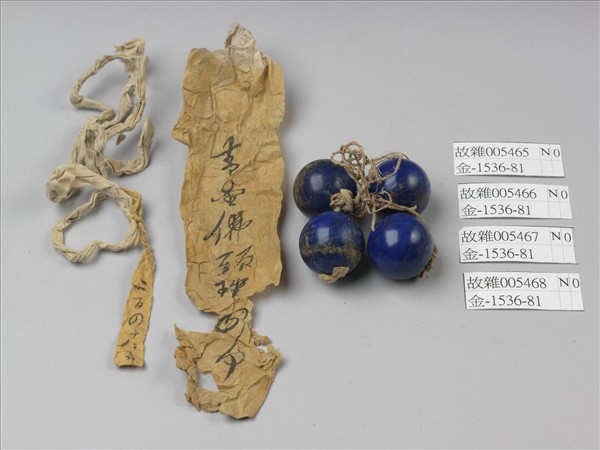 二百四十
青金佛頭
故雜005465 N0
金-1536-81
故雜005466 N0
金-1536-81
故雜005467 N0
金-1536-81
故雜005468 N0
金-1536-81